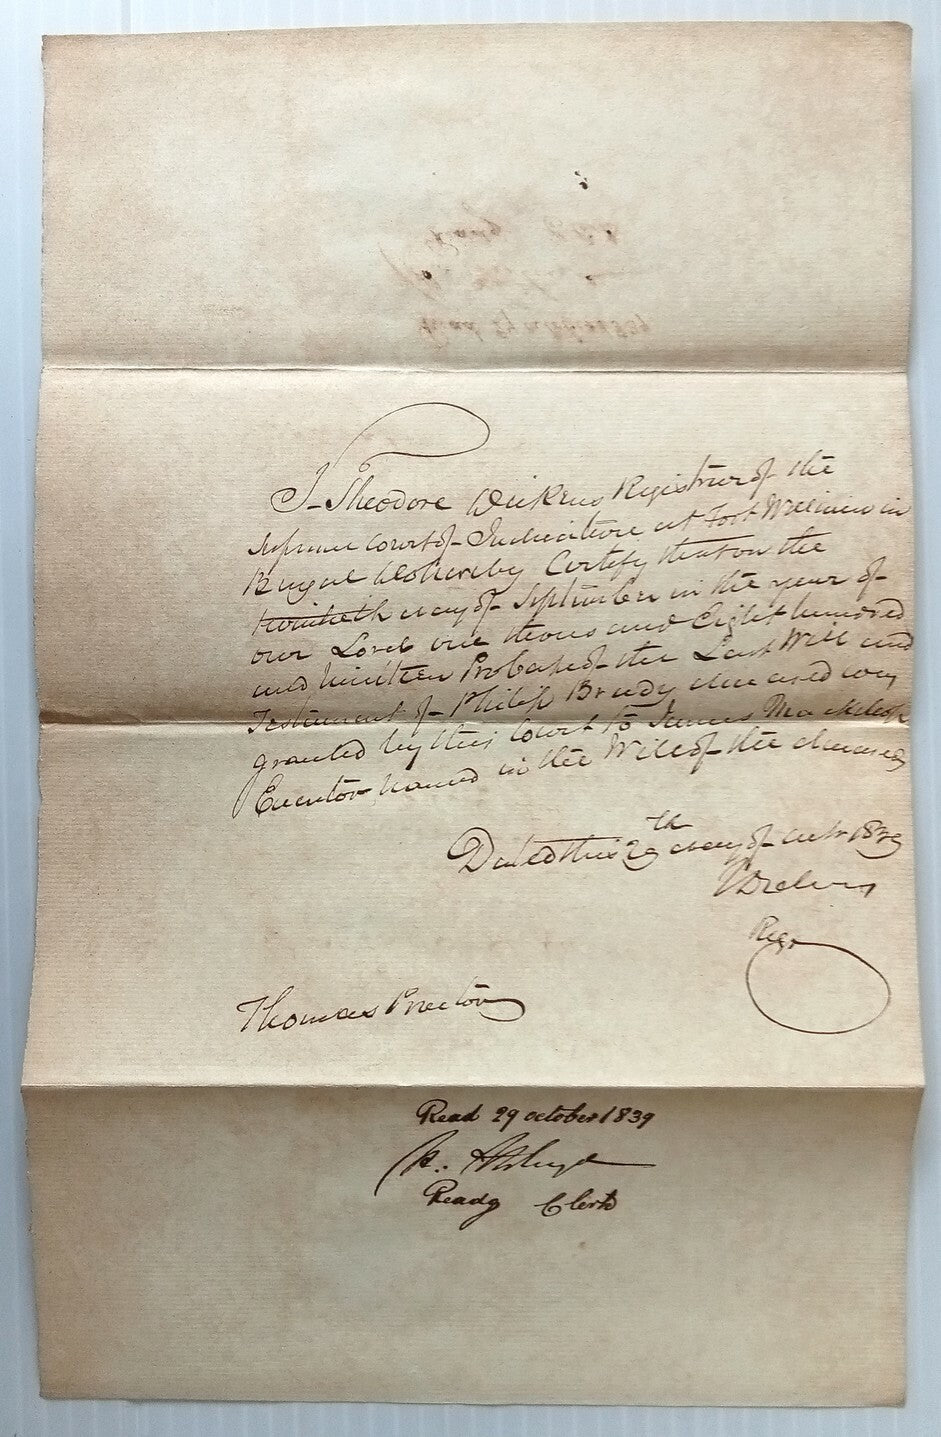 I Theodore Dickens Registrar of the
Supreme Court of Judicature at Fort William in
Bengal do hereby Certify that on the
twentieth day of September in the year of
our Lord one thousand Eight hundred
and nineteen Probate of the Last Will and
Testament of Philip Brady deceased was
granted by this Court to James
Executor named in the Will of the deceased
Dated this 29th day of Octr 1839
Regr
Thomas Proctor
Read 29 october 1839
Readg Clerk